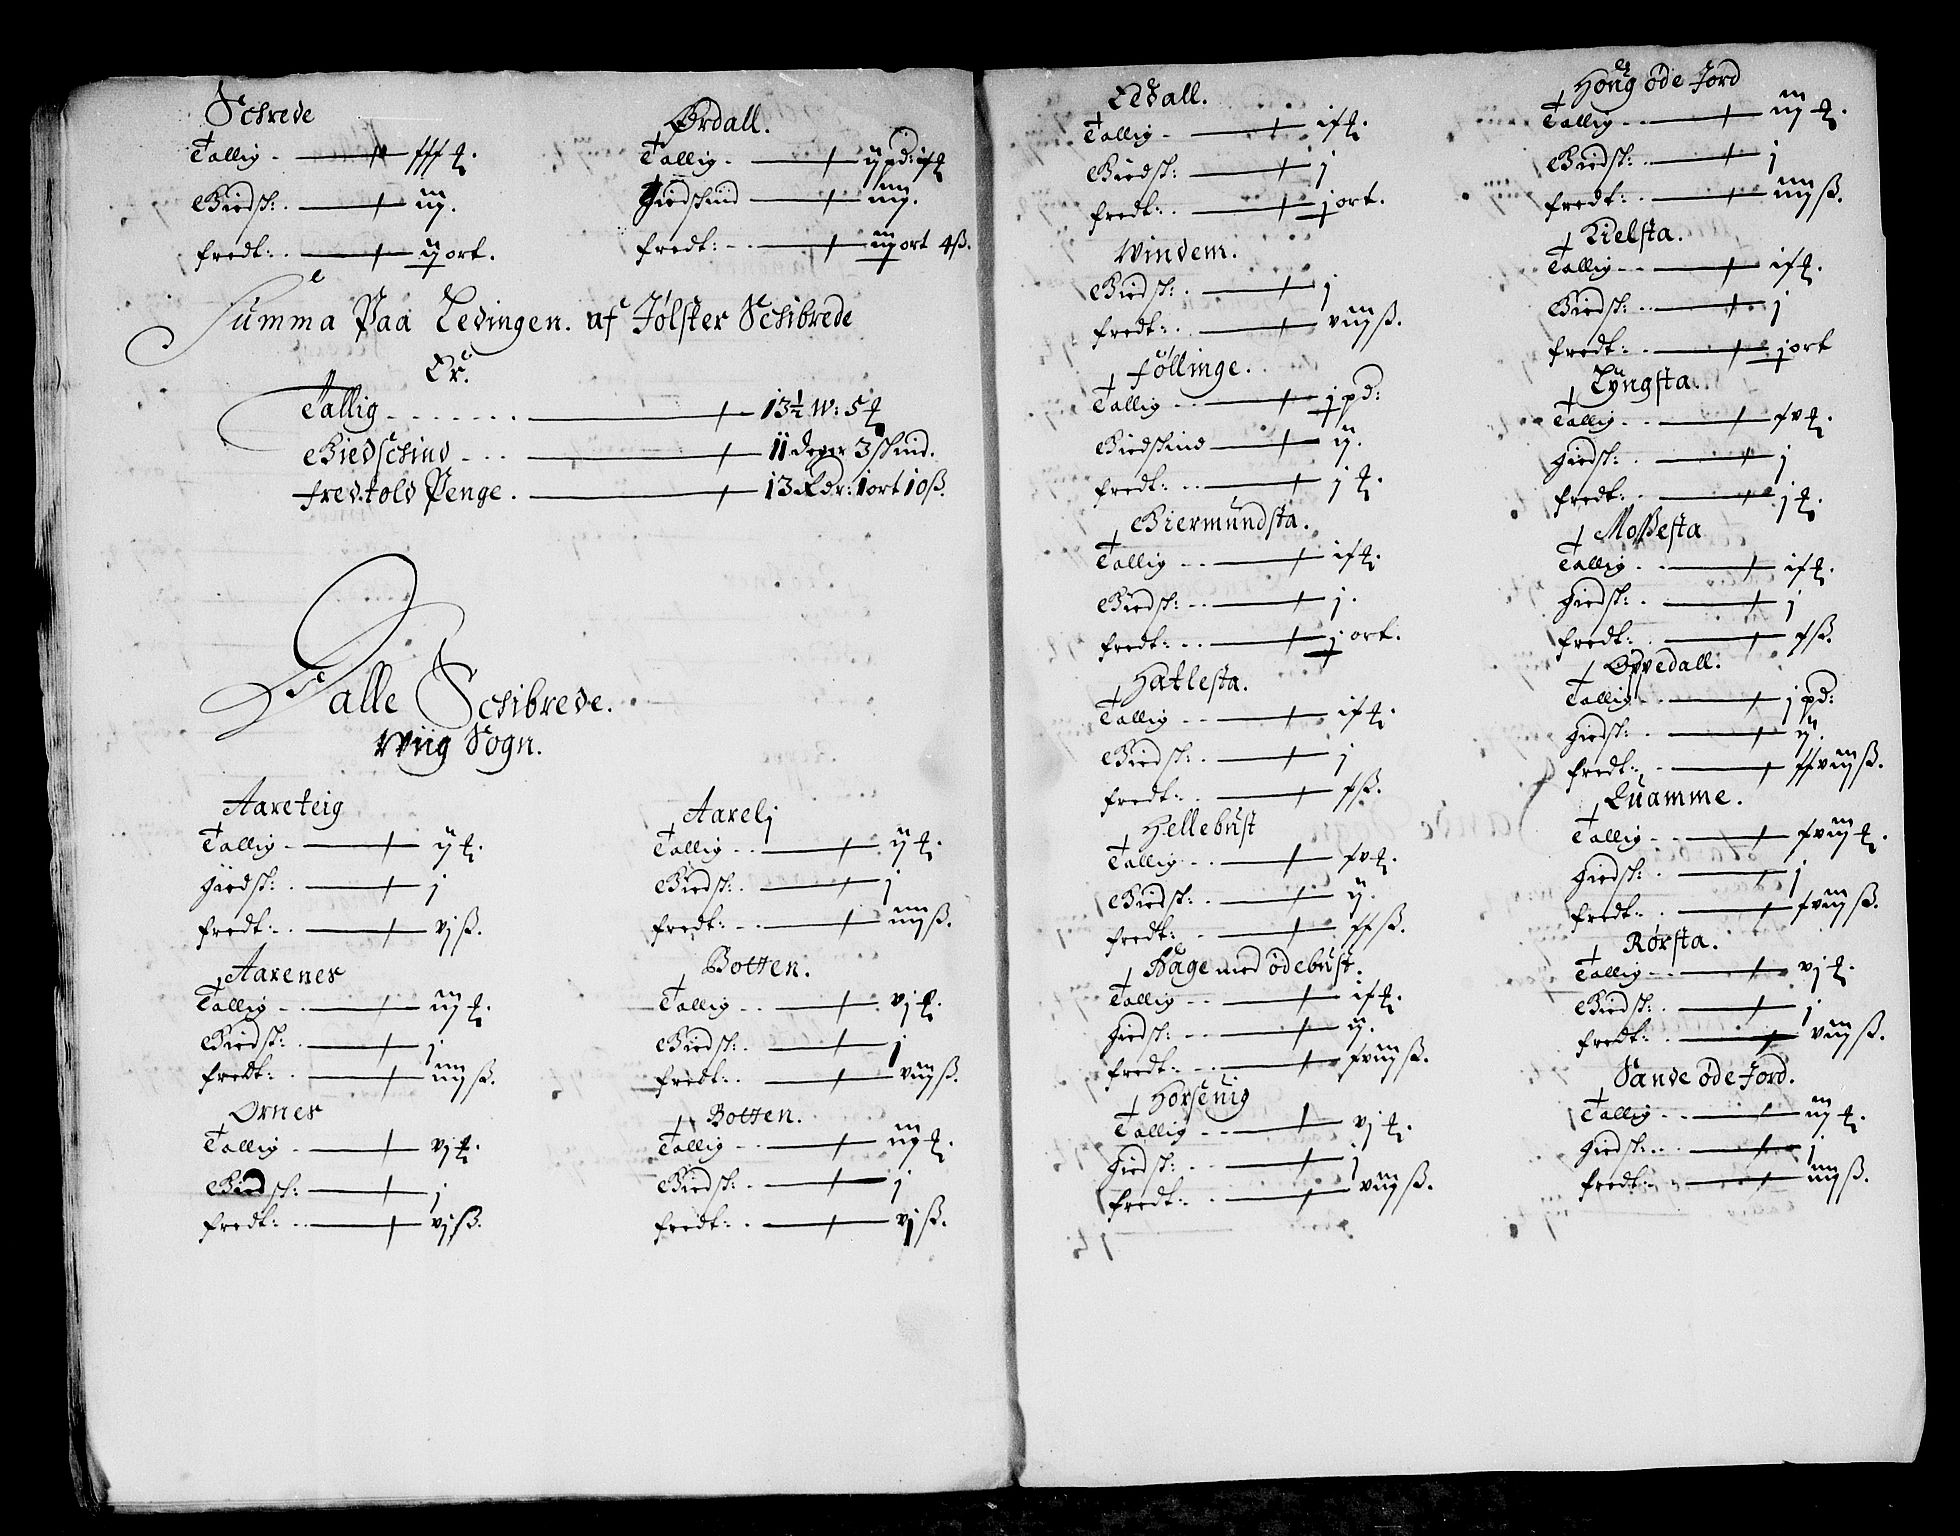 Schrede
Tallig - fff ℔.
Giedsk: - iij.
fredt: - ij ort.
Ørdall.
Tallig - ij pd: if ℔
Giedskind - iiij.
fredt: - iij ort 4 ß.
Summa Paa Ledingen af Jølster Schibrede
Er.
Tallig - 13½ W: 5 ℔
Giedschind - 11 deger 3 skind.
fredtold Penge - 13 Rdr: 1 ort 10 ß.
Dalle Schibrede.
Wiig Sogn.
Aareteig
Tallig - ij ℔.
giedsk: - j
fredt: - vj ß.
Aarenes
Tallig - iij ℔.
Giedsk: - j
fredt: - iiij ß.
Ornes
Tallig - vj ℔.
Giedsk: - j
fredt: - vj ß.
Aarelj
Tallig - ij ℔.
Giedsk: - j
fredt: - iiij ß.
Botten.
Tallig - vj ℔.
Giedsk: - j
fredt: - viij ß.
Botten.
Tallig - iij ℔.
Giedsk: - j
fredt: - vj ß.
Eedall.
Tallig - if ℔.
Giedsk: - j
fredt: - j ort.
Windem.
Giedsk: - j
fredt: - viij ß.
Föllinge.
Tallig - j pd:
Giedskind - ij.
fredt: - j ℔.
Giermundsta.
Tallig - if ℔.
Giedsk: - j.
fredt: - j ort.
Hatlesta.
Tallig - if ℔.
Giedsk: - j
fredt: - f ß.
Hellebust
Tallig - fv ℔.
Giedsk: - ij.
fredt: - ff ß.
Hage med ödebust.
Tallig - if ℔.
giedsk: - ij.
fredt: - fviij ß.
Horsenig
Tallig - vj ℔.
giedsk: - j
fredt: - viij ß.
Houg öde Jord
Tallig - iij ℔.
Giedsk: - j
fredt: - iiij ß.
Kielsta.
Tallig - if ℔.
Giedsk: - j
fredt: - j ort
Lyngsta.
Tallig - fv ℔.
giedsk: - j
fredt: - j ℔.
Moßesta
Tallig - if ℔.
giedsk: - j
fredt: - f ß.
Oppedall.
Tallig - j pd:
giedsk: - ij.
fredt: - ffviij ß.
Quamme.
Tallig - fviij ℔.
giedsk: - j
fredt: - fviij ß.
Rørsta.
Tallig - vj ℔.
Giedsk: - j
fredt: - viij ß.
Sande öde Jord.
Tallig - iij ℔.
giedsk: - j
fredt: - iiij ß.